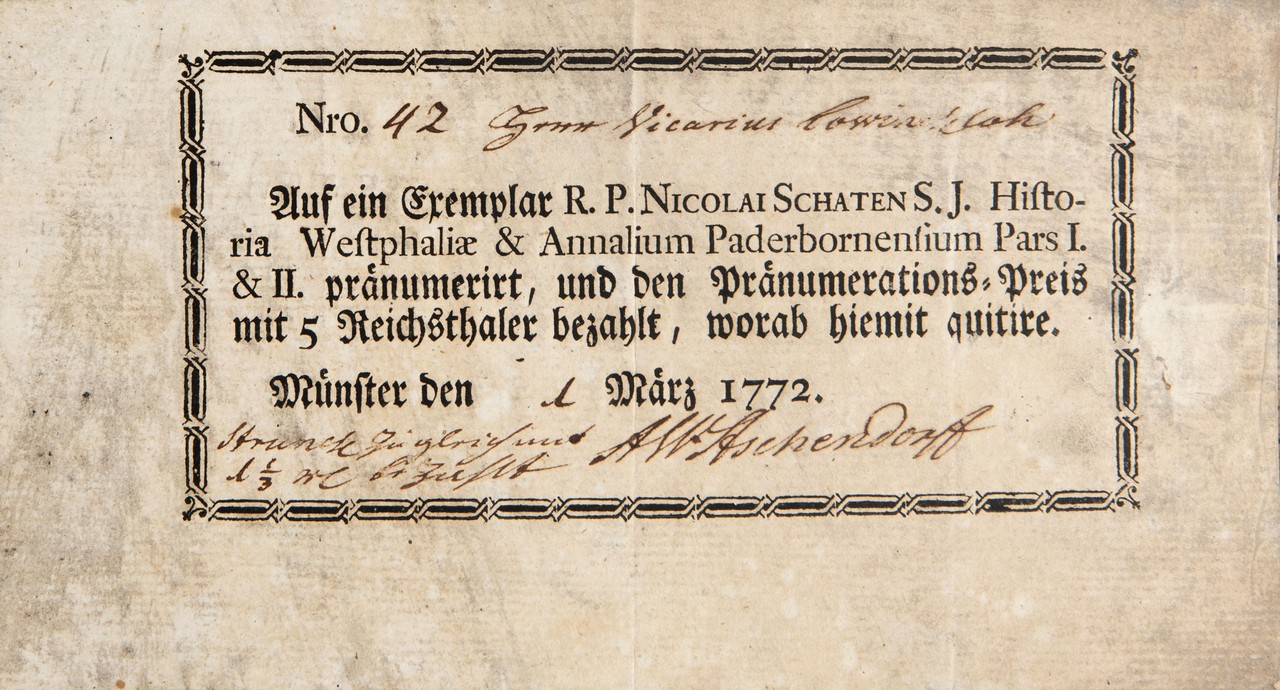 Nro. 42 Herr Vicarius
Auf ein Exemplar R. P. NICOLAI SCHATEN S. J. Hiſto-
ria Weſtphaliæ & Annalium Paderbornenſium Pars I.
& II. pränumerirt, und den Pränumerations-Preis
mit 5 Reichsthaler bezahlt, worab hiemit quitire.
Münſter den 1 März 1772.
Strunck zugleich mit AW Aschendorff
1 1/3 bezahlt